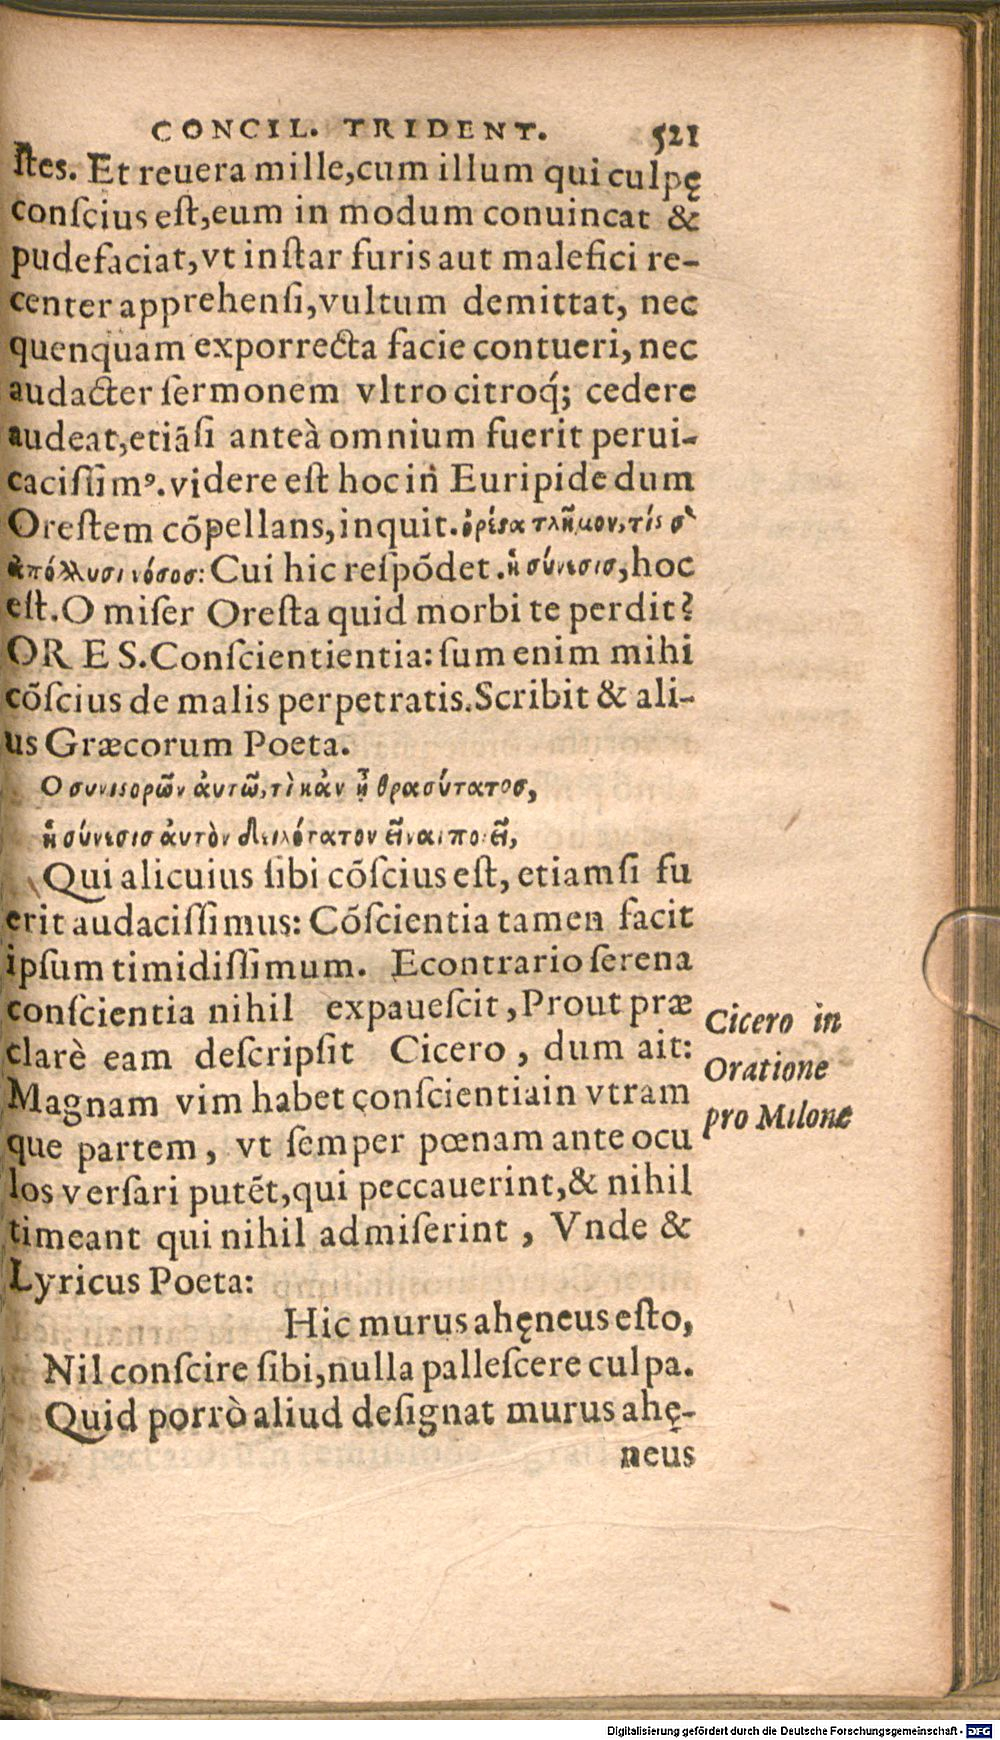 CONCIL. TRIDENT. 521
ſtes. Et reuera mille,cum illum qui culpę
conſcius eſt,eum in modum conuincat &
pudefaciat,vt inſtar furis aut malefici re-
center apprehenſi,vultum demittat, nec
quenquam exporrecta facie contueri, nec
audacter ſermonem vltro citroq́; cedere
audeat,etiãſi anteà omnium fuerit perui-
caciſſimꝰ. videre eſt hoc in Euripide dum
Oreſtem cõpellans, inquit. ὀρέϛα τλῆμον, τίς σ᾽
ἀπόλλυσι νόσος: Cui hic reſpõdet. ἡ σύνεσισ, hoc
eſt. O miſer Oreſta quid morbi te perdit?
ORES. Conſcientientia: ſum enim mihi
cõſcius de malis perpetratis. Scribit & ali-
us Græcorum Poeta.
Ο συνιϛορῶν ἀυτῶ, τὶ κἀν ᾖ θρασύτατοσ,
ἡ σύνεσισ ἀυτὸν δειλότατον εἶναι ποιεῖ,
Qui alicuius ſibi cõſcius eſt, etiamſi fu
erit audaciſſimus: Cõſcientia tamen facit
ipſum timidiſſimum. Econtrario ſerena
conſcientia nihil expaueſcit, Prout præ
clarè eam deſcripſit Cicero, dum ait:
Magnam vim habet conſcientiain vtram
que partem, vt ſemper pœnam ante ocu
los verſari putẽt,qui peccauerint,& nihil
timeant qui nihil admiſerint, Vnde &
Lyricus Poeta:
Hic murus ahęneus eſto,
Nil conſcire ſibi,nulla palleſcere culpa.
Quid porrò aliud deſignat murus ahę-
neus
Cicero in
Oratione
pro Milone
Digitalisierung gefördert durch die Deutsche Forschungsgemeinschaft - DFG